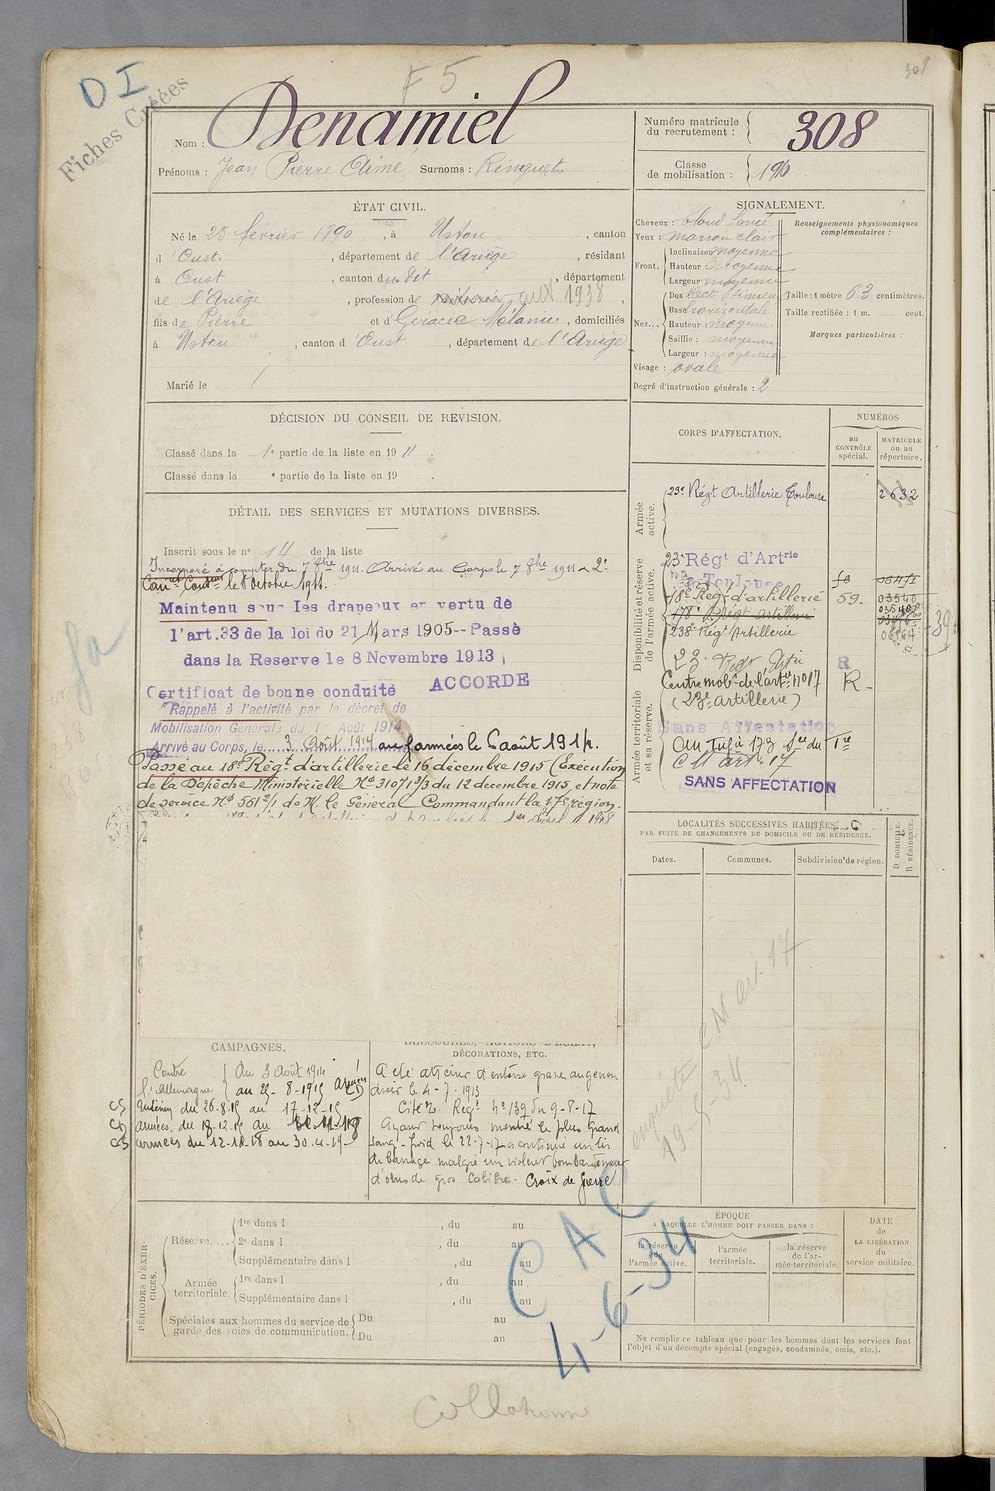 308
F 5
D I
Fiches Créées
Nom : Denamiel
Prénoms : Jean Pierre Aimé Surnoms : Ringuet
Numéro matricule du recrutement : 308
Classe de mobilisation : 1910
ÉTAT CIVIL.
Né le 23 février 1890, à Ustou, canton
d'Oust, département de l'Ariège, résidant
à Oust, canton du dit, département
de l'Ariège, profession de
fils de Pierre et d Mélanie, domiciliés
à Ustou, canton d'Oust, département de l'Ariège
Marié le /
SIGNALEMENT.
Cheveux : blond foncé
Yeux : marron clair
Front. Inclinaison moyenne
Hauteur moyenne
Largeur moyenne
Nez... Dos rect.
Base horizontale
Hauteur moyenne
Saillie : moyenne
Largeur : moyenne
Visage : ovale
Degré d'instruction générale : 2
Renseignements physionomiques complémentaires :
Taille : 1 mètre 63 centimètres.
Taille rectifiée : 1 m. cent.
Marques particulières :
DÉCISION DU CONSEIL DE REVISION.
Classé dans la 1e partie de la liste en 1911.
Classé dans la e partie de la liste en 19 .
DÉTAIL DES SERVICES ET MUTATIONS DIVERSES.
Inscrit sous le n° 14 de la liste
Incorporé à compter du 7 8bre 1911. Arrivé au Corps le 7 8bre 1911 2e
Can. Cond. le 8 octobre 1911.
Maintenu sous les drapeaux en vertu de
l'art.33 de la loi du 21 Mars 1905--Passé
dans la Reserve le 8 Novembre 1913
Certificat de bonne conduite ACCORDE
Rappelé à l'activité par le décret de
Mobilisation Générale du 1er Août 1914
Arrivé au Corps, le 3 Août 1914 aux armées le 6 août 1914.
Passé au 18e Régt d'artillerie le 16 décembre 1915 (Exécution
de la Dépêche Ministérielle No 31071 2/3 du 12 décembre 1915, et note
de service No 561 2/1 de M. le Général Commandant la 17e région.
CORPS D'AFFECTATION.
NUMÉROS
au CONTRÔLE spécial.
MATRICULE ou au répertoire.
Armée active.
23e Régt Artillerie Toulouse 2632
Disponibilité et réserve de l'armée active.
23e Régt d'Artrie
à Toulouse
18e Régt d'artillerie 59. 03540
238e Régt Artillerie
23e Regt Artie R
Armée territoriale et sa réserve.
Centre mobe de l'artie n° 17 R
(23e artillerie)
Sans Affectation
CM art. 17
SANS AFFECTATION
LOCALITÉS SUCCESSIVES HABITÉES
PAR SUITE DE CHANGEMENTS DE DOMICILE OU DE RÉSIDENCE.
Dates.
Communes.
Subdivision de région.
D DOMICILE.
R RÉSIDENCE.
CM art. 17
enquête
19-5-34
CAMPAGNES.
Contre l'Allemagne du 3 Août 1914
au 25-8-1915 Armées
Intérieur du 26-8-15 au 17-12-15
Armées du 18-12-15 au 11-11-18
armées du 12-11-18 au 30-4-19
BLESSURES, ACTIONS D'ÉCLAT, DÉCORATIONS, ETC.
A été atteint d'entorse grave au genou
droit le 4-7-1915
Cité O. Régt No 139 du 9-8-17
Ayant toujours montré le plus grand
sang-froid le 22-7-17 a continué un tir
de barrage malgré un violent bombardement
d'obus de gros calibre. Croix de Guerre
PÉRIODES D'EXERCICES.
Réserve.... 1re dans l , du au
2e dans l , du au
Supplémentaire dans l , du au
Armée territoriale. 1re dans l , du au
Supplémentaire dans l , du au
Spéciales aux hommes du service de garde des voies de communication. Du au
Du au
CAC
4-6-34
ÉPOQUE
A LAQUELLE L'HOMME DOIT PASSER DANS :
la réserve de l'armée active.
l'armée territoriale.
la réserve de l'armée territoriale.
DATE DE LA LIBÉRATION du service militaire.
Ne remplir ce tableau que pour les hommes dont les services font
l'objet d'un décompte spécial (engagés, condamnés, omis, etc.).